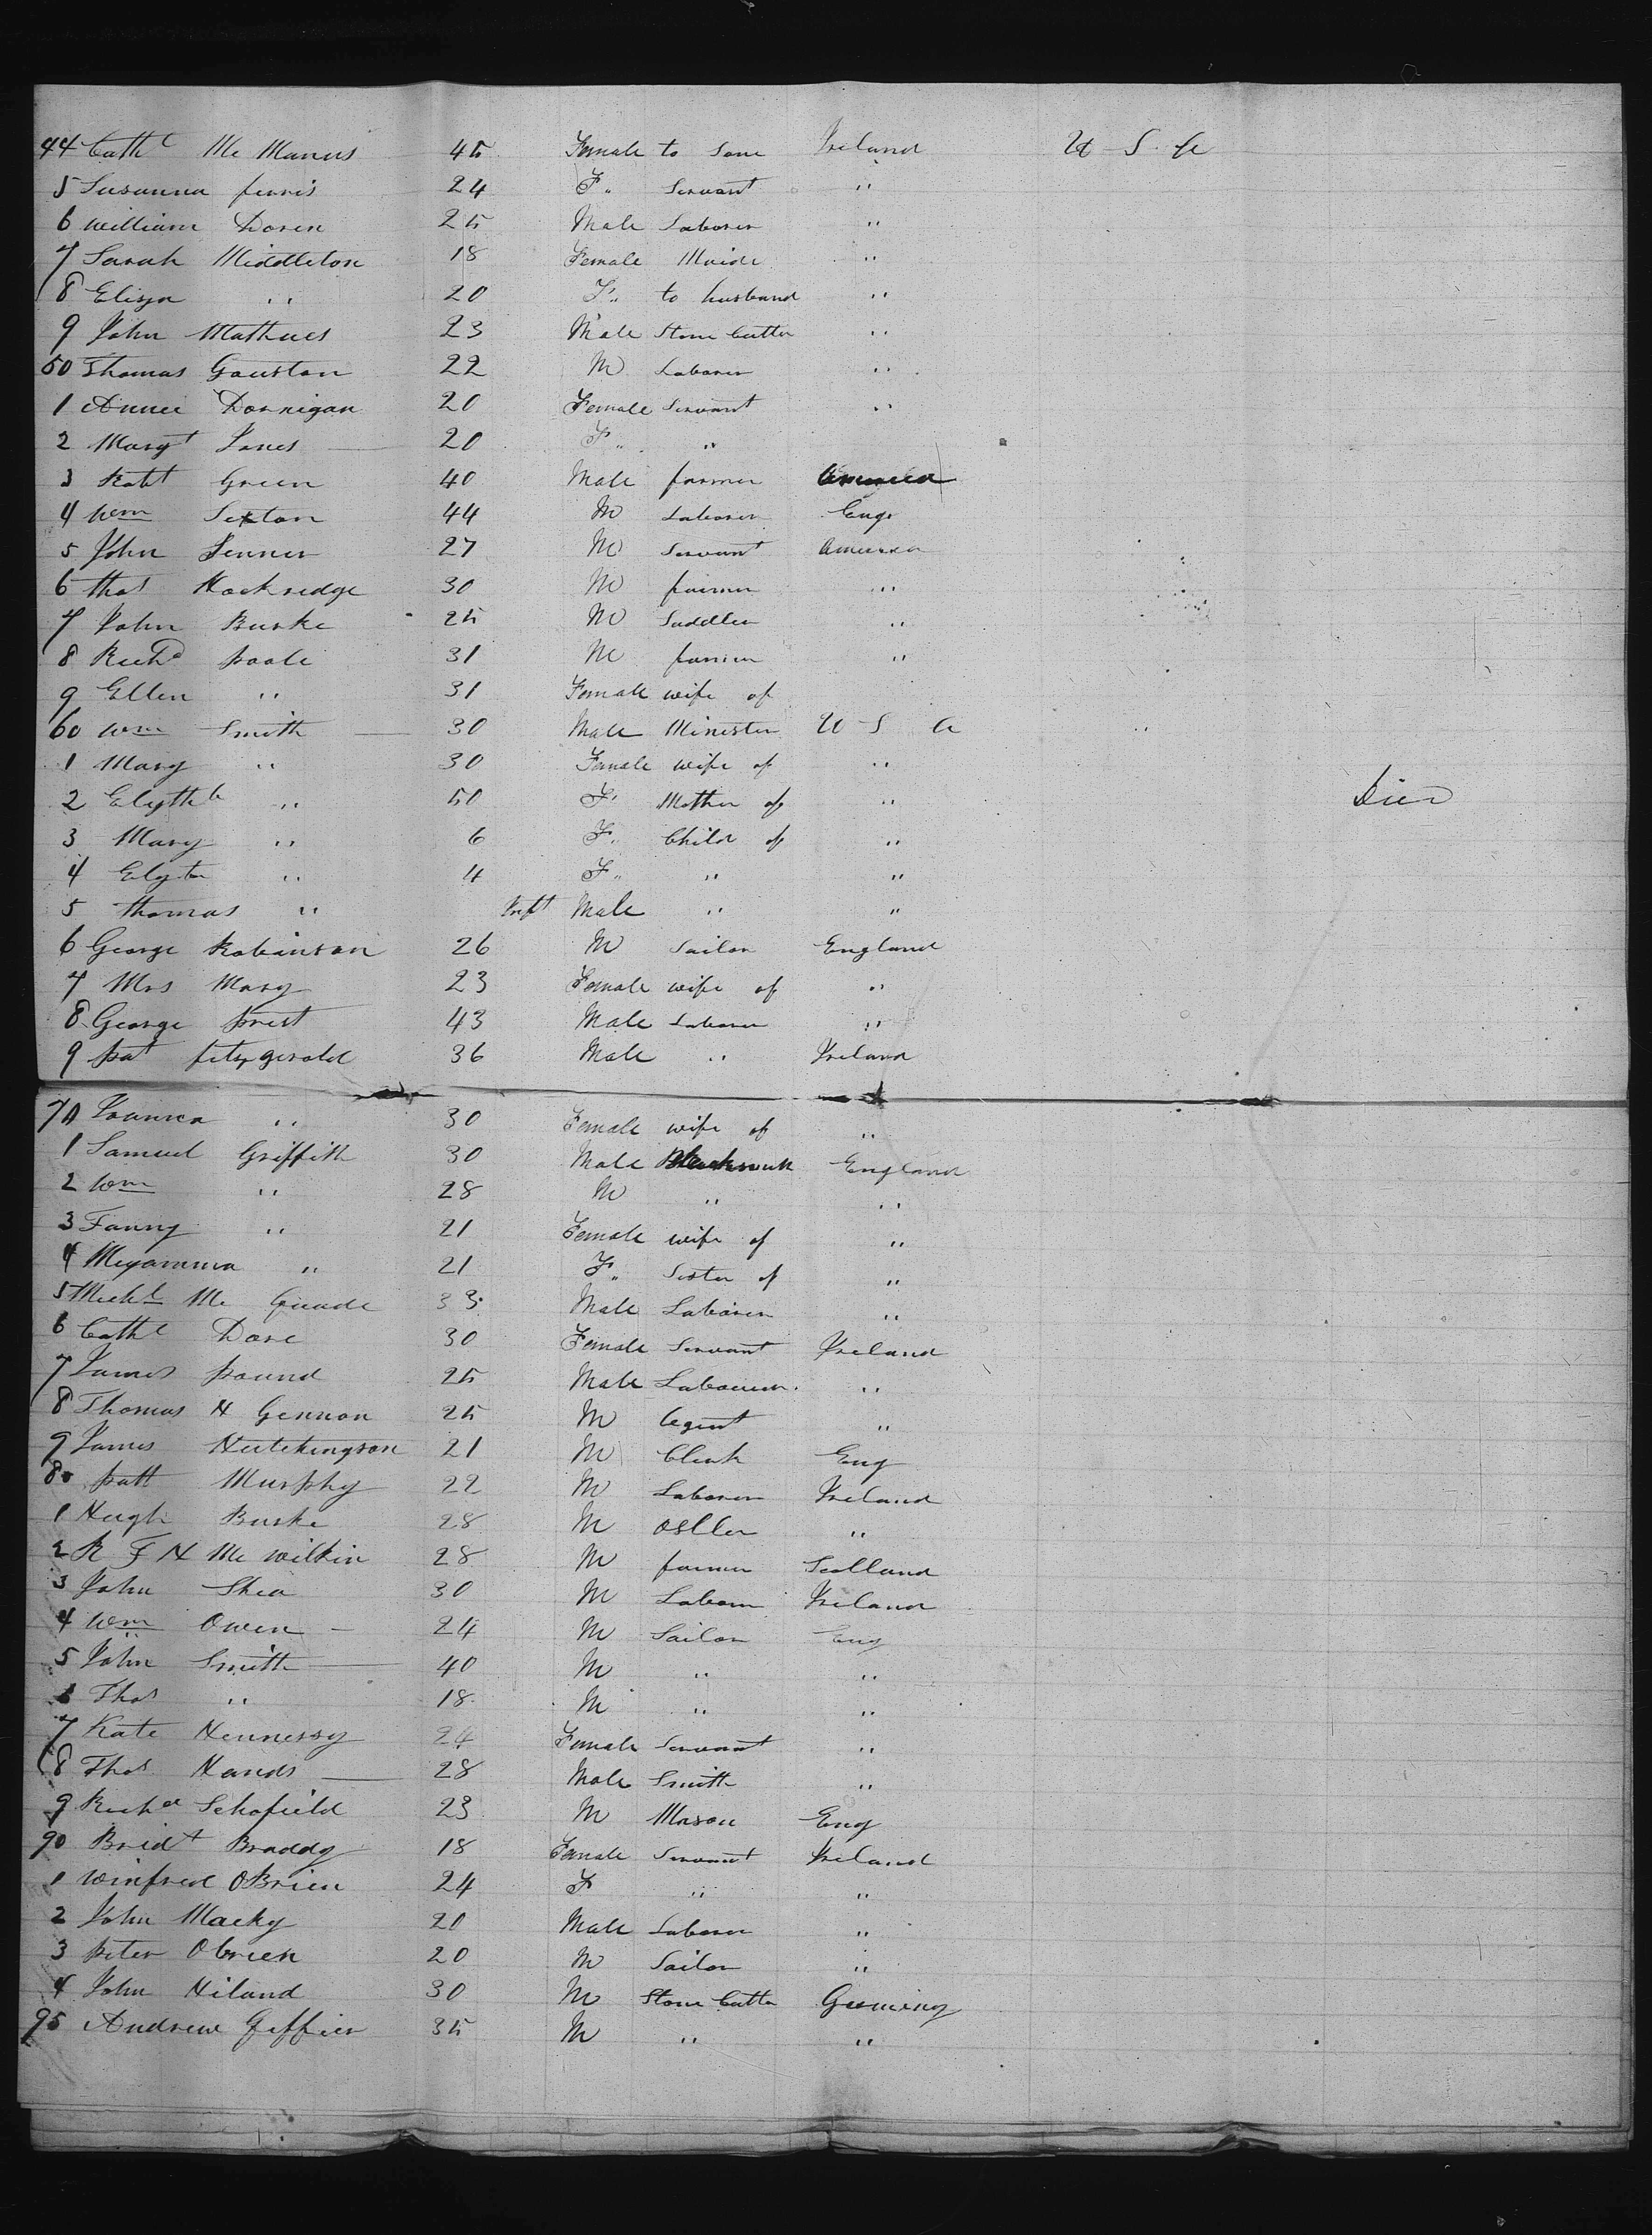 44 Cathe Mc Manus 45 Female to Sone Ireland U S A
5 Susanna ferris 24 F" Servant "
6 William Doren 25 Male Laborer "
7 Sarah Middleton 18 Female Maide "
8 Eliza " 20 F" to husband "
9 John Mathues 23 Male Stone Cutter "
50 Thomas Gouston 22 M Laborer "
1 Annie Donnigan 20 Female Servant "
2 Margt Jones 20 F " "
3 Robt Green 40 Male farmer America
4 Wm Sexton 44 M Laborer Eng
5 John Jenner 27 M Servant America
6 Thos Hockredge 30 M farmer "
7 John Burke 25 M Saddler "
8 Richd poole 31 M farmer "
9 Ellen " 31 Female wife of
60 Wm Smith 30 Male Minister U S A
1 Mary " 30 Female wife of "
2 Elizthh " 50 F" Mother of " Died
3 Mary " 6 F" Child of "
4 Elizth " 4 F" " "
5 Thomas " Inft Male " "
6 George Robinson 26 M Sailor England
7 Mrs Mary 23 Female wife of "
8 George priest 43 Male Laborer "
9 pat fitzgerald 36 Male " Ireland
70 Joanna " 30 Female wife of "
1 Samuel Griffith 30 Male Blacksmith England
2 Wm " 28 M " "
3 Fanny " 21 Female wife of "
4 " 21 F" Sister of "
5 Michl Mc Quade 33 Male Laborer "
6 Cathe Dore 30 Female Servant Ireland
7 James pound 25 Male Labourer "
8 Thomas H Gennon 25 M Agent "
9 James Hutchingson 21 M Clerk Eng
80 patt Murphy 22 M Laborer Ireland
1 Hugh Burke 28 M Ostler "
2 R F H Mc Wilkin 28 M farmer Scotland
3 John Shea 30 M Laborer Ireland
4 Wm Owen 24 M Sailor Eng
5 John Smith 40 M " "
6 Thos " 18 M " "
7 Kate Hennessy 24 Female Servant "
8 Thos Hands 28 Male Smith "
9 Richd Schofield 23 M Mason Eng
90 Bridt Braddy 18 Female Servant Ireland
1 Winfred OBrien 24 F " "
2 John Macky 20 Male Laborer "
3 peter Obrien 20 M Sailor "
4 John Hiland 30 M Stone Cutter Germeny
95 Andrew Geffier 35 M " "